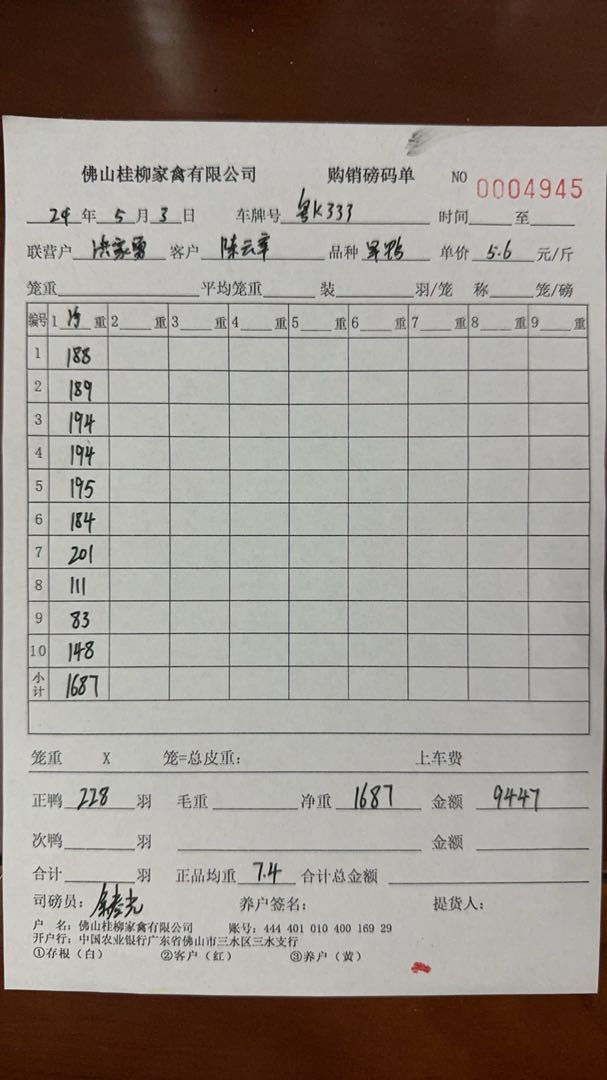 佛山桂柳家禽有限公司 购销磅码单 NO 0004945
24年5月3日 车牌号粤K333 时间 至
联营户洪家勇 客户陈云章 品种旱鸭 单价5.6元/斤
笼重 平均笼重 装 羽/笼 称 笼/磅
编号 1 净重 2 重 3 重 4 重 5 重 6 重 7 重 8 重 9 重
1 188
2 189
3 194
4 194
5 195
6 184
7 201
8 111
9 83
10 148
小计 1687
笼重 X 笼=总皮重: 上车费
正鸭228羽 毛重 净重1687 金额9447
次鸭 羽 金额
合计 羽 正品均重7.4 合计总金额
司磅员: 养户签名: 提货人:
户 名: 佛山桂柳家禽有限公司 账号: 444 401 010 400 169 29
开户行: 中国农业银行广东省佛山市三水区三水支行
①存根(白) ②客户(红) ③养户(黄)